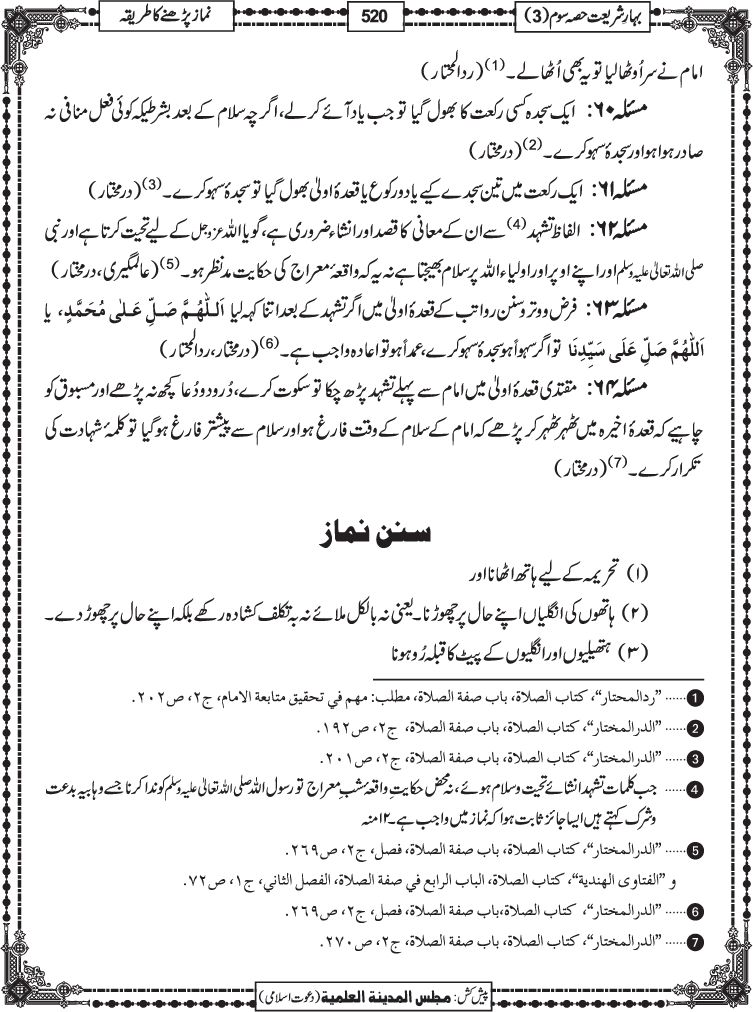 بہارِ شریعت حصہ سوم (3)
520
نماز پڑھنے کا طریقہ
امام نے سر اُوٹھا لیا تو یہ بھی اُٹھا لے۔(1) (ردالمحتار)
مسئلہ ۶۰: ایک سجدہ کسی رکعت کا بھول گیا تو جب یاد آئے کرلے، اگرچہ سلام کے بعد بشرطیکہ کوئی فعل منافی نہ
صادر ہوا ہو اور سجدۂ سہو کرے۔(2) (درمختار)
مسئلہ ۶۱: ایک رکعت میں تین سجدے کیے یا دو رکوع یا قعدۂ اولیٰ بھول گیا تو سجدۂ سہو کرے۔(3) (درمختار)
مسئلہ ۶۲: الفاظ تشہد (4) سے ان کے معانی کا قصد اور انشاء ضروری ہے، گویا اللہ عزوجل کے لیے تحیت کرتا ہے اور نبی
صلی اللہ تعالیٰ علیہ وسلم اور اپنے اوپر اور اولیاء اللہ پر سلام بھیجتا ہے نہ یہ کہ واقعۂ معراج کی حکایت مدنظر ہو۔(5) (عالمگیری، درمختار)
مسئلہ ۶۳: فرض و وتر و سنن رواتب کے قعدۂ اولیٰ میں اگر تشہد کے بعد اتنا کہہ لیا اَللّٰهُمَّ صَلِّ عَلٰی مُحَمَّدٍ، یا
اَللّٰهُمَّ صَلِّ عَلٰی سَیِّدِنَا تو اگر سہواً ہو سجدۂ سہو کرے، عمداً ہو تو اعادہ واجب ہے۔(6) (درمختار، ردالمحتار)
مسئلہ ۶۴: مقتدی قعدۂ اولیٰ میں امام سے پہلے تشہد پڑھ چکا تو سکوت کرے، دُرود و دُعا کچھ نہ پڑھے اور مسبوق کو
چاہیے کہ قعدۂ اخیرہ میں ٹھہر ٹھہر کر پڑھے کہ امام کے سلام کے وقت فارغ ہو اور سلام سے پیشتر فارغ ہوگیا تو کلمۂ شہادت کی
تکرار کرے۔(7) (درمختار)
سنن نماز
(۱) تحریمہ کے لیے ہاتھ اٹھانا اور
(۲) ہاتھوں کی انگلیاں اپنے حال پر چھوڑنا۔ یعنی نہ بالکل ملائے نہ بہ تکلف کشادہ رکھے بلکہ اپنے حال پر چھوڑ دے۔
(۳) ہتھیلیوں اور انگلیوں کے پیٹ کا قبلہ رُو ہونا
1 ...... ”ردالمحتار“، کتاب الصلاة، باب صفة الصلاة، مطلب: مهم في تحقيق متابعة الامام، ج۲، ص۲۰۲.
2 ...... ”الدرالمختار“، کتاب الصلاة، باب صفة الصلاة، ج۲، ص۱۹۲.
3 ...... ”الدرالمختار“، کتاب الصلاة، باب صفة الصلاة، ج۲، ص۲۰۱.
4 ...... جب کلمات تشہد انشائے تحیت و سلام ہوئے، نہ محض حکایتِ واقعہ شب معراج تو رسول اللہ صلی اللہ تعالیٰ علیہ وسلم کو ندا کرنا جسے وہابیہ بدعت
و شرک کہتے ہیں ایسا جائز ثابت ہوا کہ نماز میں واجب ہے۔ ۱۲ منہ
5 ...... ”الدرالمختار“، کتاب الصلاة، باب صفة الصلاة، فصل، ج۲، ص۲۶۹.
و ”الفتاوی الهندية“، کتاب الصلاة، الباب الرابع في صفة الصلاة، الفصل الثاني، ج۱، ص۷۲.
6 ...... ”الدرالمختار“، کتاب الصلاة،باب صفة الصلاة، فصل، ج۲، ص۲۶۹.
7 ...... ”الدرالمختار“، کتاب الصلاة، باب صفة الصلاة، ج۲، ص۲۷۰.
پیش کش: مجلس المدینة العلمیة (دعوتِ اسلامی)